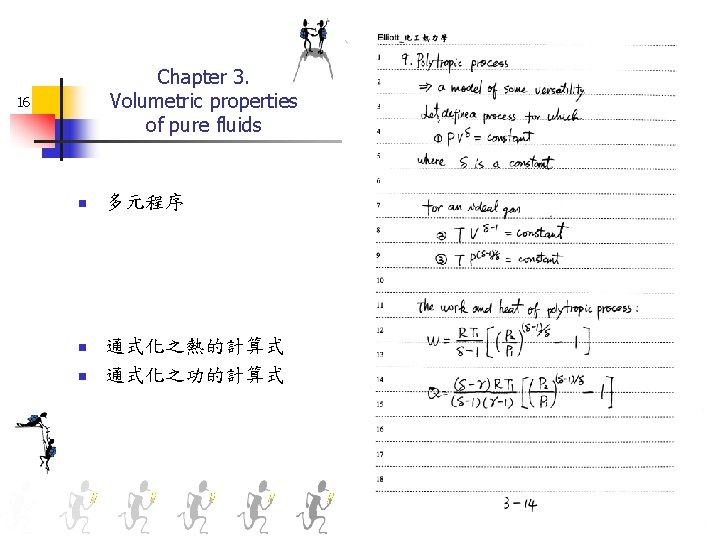 Chapter 3.
Volumetric properties
of pure fluids
16
多元程序
通式化之熱的計算式
通式化之功的計算式
Elliott_化工熱力學
1 9. Polytropic process
2 ⇒ a model of some versatility
3 Let define a process for which
4 ① PV^δ = constant
5 where δ is a constant
6
7 for an ideal gas
8 ② TV^(δ-1) = constant
9 ③ TP^((1-δ)/δ) = constant
10
11 The work and heat of polytropic process:
12
13 W = RT₁/(δ-1) [(P₂/P₁)^((δ-1)/δ) - 1]
14
15 Q = (δ-γ)RT₁/((δ-1)(γ-1)) [(P₂/P₁)^((δ-1)/δ) - 1]
16
17
18
3-14